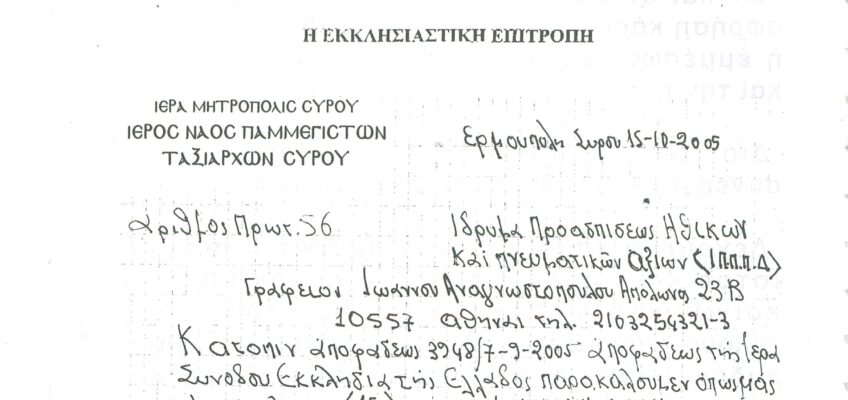 Η ΕΚΚΛΗΣΙΑΣΤΙΚΗ ΕΠΙΤΡΟΠΗ
ΙΕΡΑ ΜΗΤΡΟΠΟΛΙΣ ΣΥΡΟΥ
ΙΕΡΟΣ ΝΑΟΣ ΠΑΜΜΕΓΙΣΤΩΝ
ΤΑΞΙΑΡΧΩΝ ΣΥΡΟΥ
Ερμουπολη Συρου 15-10-2005
Αριθμος Πρωτ. 56
Ιδρυμα Προασπισεως Ηθικων
και πνευματικών αξιων (Ι.Π.Π.Δ)
Γραφειον Ιωαννου Αναγνωστοπουλου Απολωνος 23Β
10557 αθηναι τηλ. 2103254321-3
Κατοπιν αποφασεως 3948/7-9-2005 αποφασεως της Ιερα
Συνοδου Εκκλησια της Ελλαδος παρακαλουμεν οπως μας